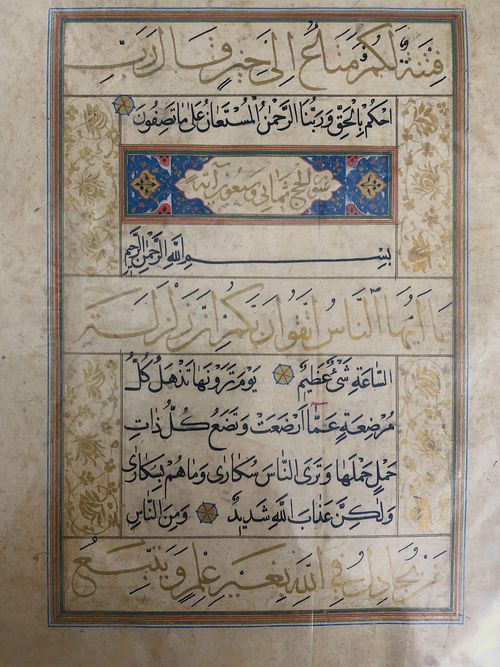 فِتْنَةٌ لَكُمْ وَمَتَاعٌ إِلَىٰ حِينٍ وَقَالَ رَبِّ
احْكُمْ بِالْحَقِّ وَرَبُّنَا الرَّحْمٰنُ الْمُسْتَعَانُ عَلَىٰ مَا تَصِفُونَ
سورة الحج ثمانی و سبعون آية
بِسْمِ اللَّهِ الرَّحْمٰنِ الرَّحِيمِ
يَا أَيُّهَا النَّاسُ اتَّقُوا رَبَّكُمْ إِنَّ زَلْزَلَةَ
السَّاعَةِ شَيْءٌ عَظِيمٌ يَوْمَ تَرَوْنَهَا تَذْهَلُ كُلُّ
مُرْضِعَةٍ عَمَّا أَرْضَعَتْ وَتَضَعُ كُلُّ ذَاتِ
حَمْلٍ حَمْلَهَا وَتَرَى النَّاسَ سُكَارَىٰ وَمَا هُمْ بِسُكَارَىٰ
وَلَٰكِنَّ عَذَابَ اللَّهِ شَدِيدٌ وَمِنَ النَّاسِ
مَنْ يُجَادِلُ فِي اللَّهِ بِغَيْرِ عِلْمٍ وَيَتَّبِعُ